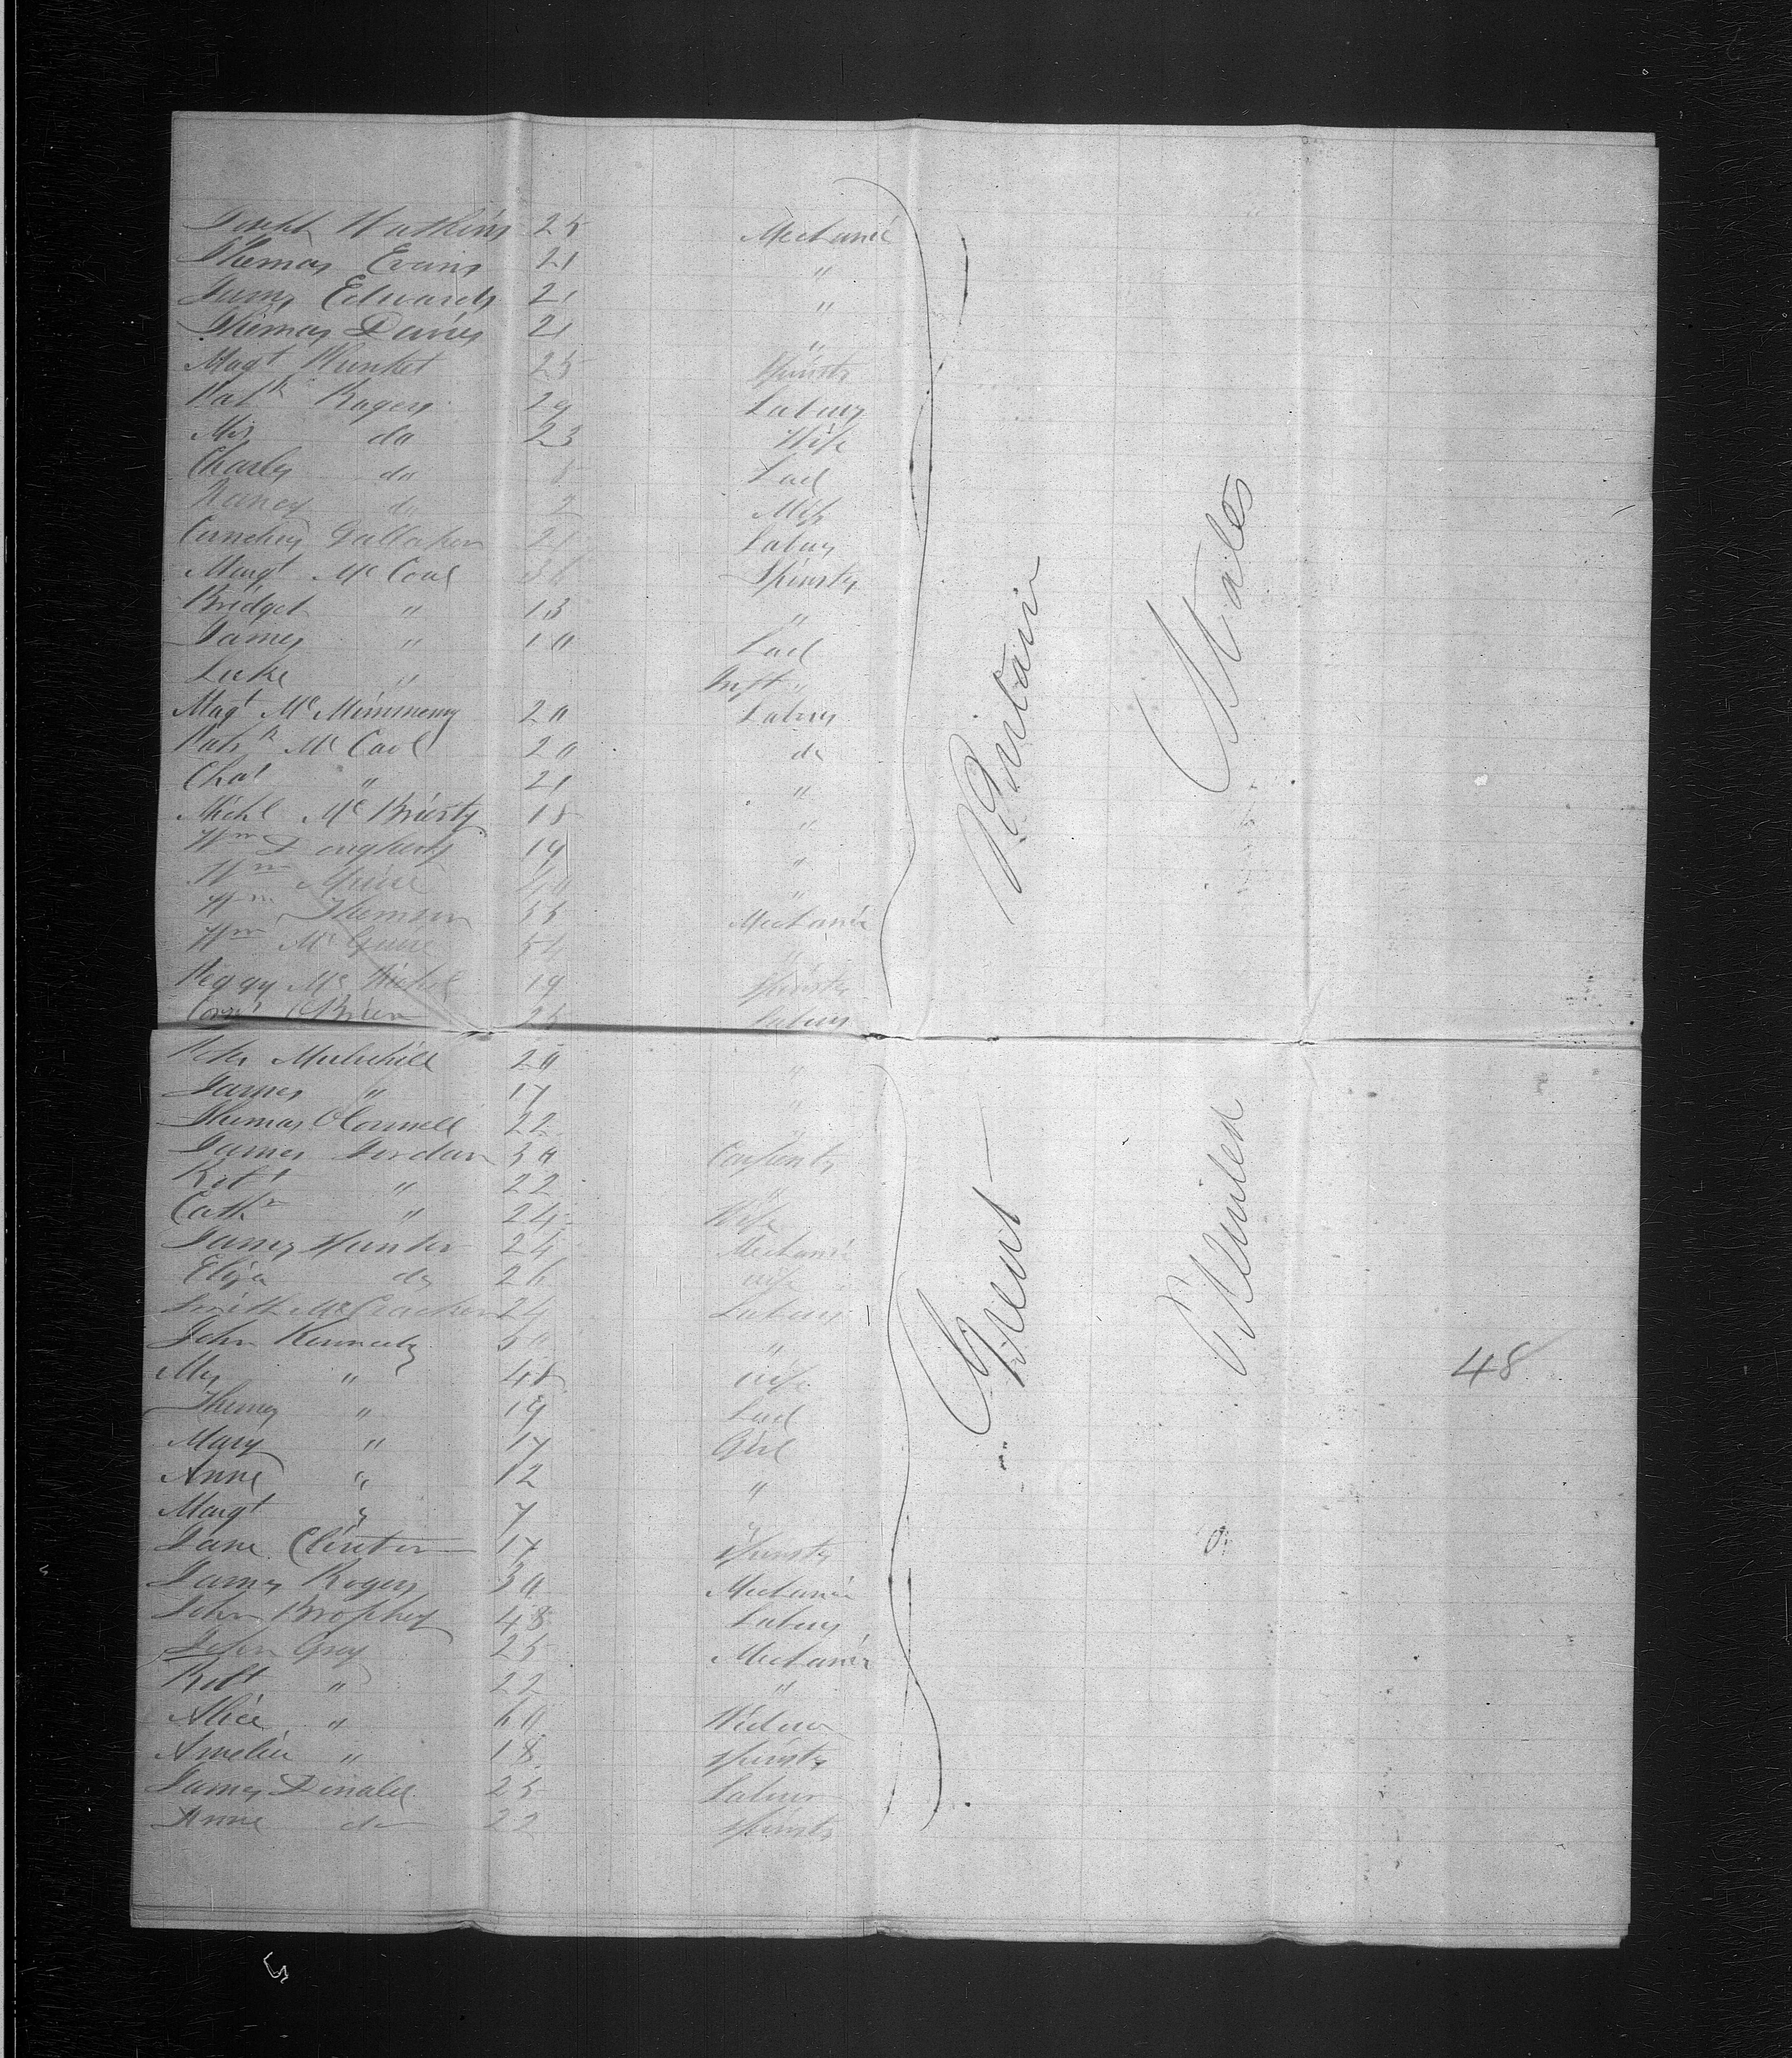 Joseph Watkins 25 Mechanic
Thomas Evans 21 "
James Edwards 21 "
Thomas Davies 21 "
Magt Plunket 25 Spinstr
Patk Rogers 29 Labour
Mrs do 23 Wife
Charles do Lad
Nancy do 2 Miss
Gallagher Labour
Margt McCoul Spinstr
Bridget " 13 "
James " 10 Lad
Luke " Inft "
Magt 20 Labour
Patk McCaul 20 do
Chas " 21 "
Michl McBriarty 18 "
Wm Dougherty 19 "
Wm 40 "
Wm Thomson 35 Mechanic
Wm McGuire 54 "
Peggy McNichol 19 Spinstr
Corns OBrien 25 Labour
Peter Mulvihill 20 "
James " 17 "
Thomas OConnell 22 "
James Jordan 30 Carpentr
Robt " 22 "
Cathn " 24 Wife
James Hunter 24 Mechanic
Eliza do 26 wife
Smith McCracken 24 Labour
John Kennedy 50 "
Mrs " 48 wife
Thomas " 19 Lad
Mary " 17 Girl
Anne " 12 "
Margt " 7 "
Jane Clinton 17 Spinstr
James Rogers 30 Mechanic
John Brophey 48 Labour
John Gray 25 Mechanic
Robt " 22 "
Alice " 60 Widow
Amelia " 18 Spinstr
James Donald 25 Labour
Anne do 22 Spinstr
Great Britain
United States
48